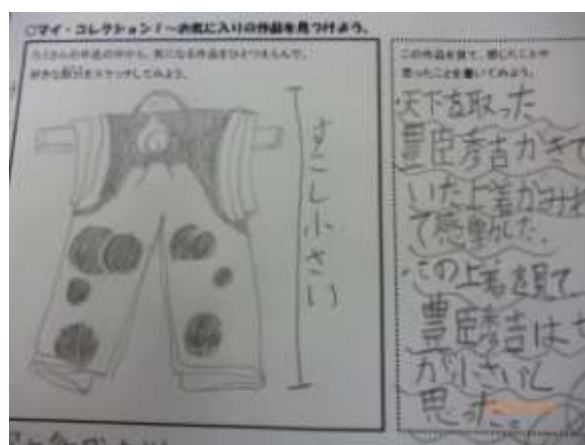 ○マイ・コレクション！～お気に入りの作品を見つけよう。
たくさんの作品の中から、気になる作品をひとつえらんで、
好きな部分をスケッチしてみよう。
すこし小さい
この作品を見て、感じたことや
思ったことを書いてみよう。
・天下を取った
豊臣秀吉がきて
いた上着がみれ
て感動した。
・この上着を見て
豊臣秀吉はせ
が小さいと
思った。